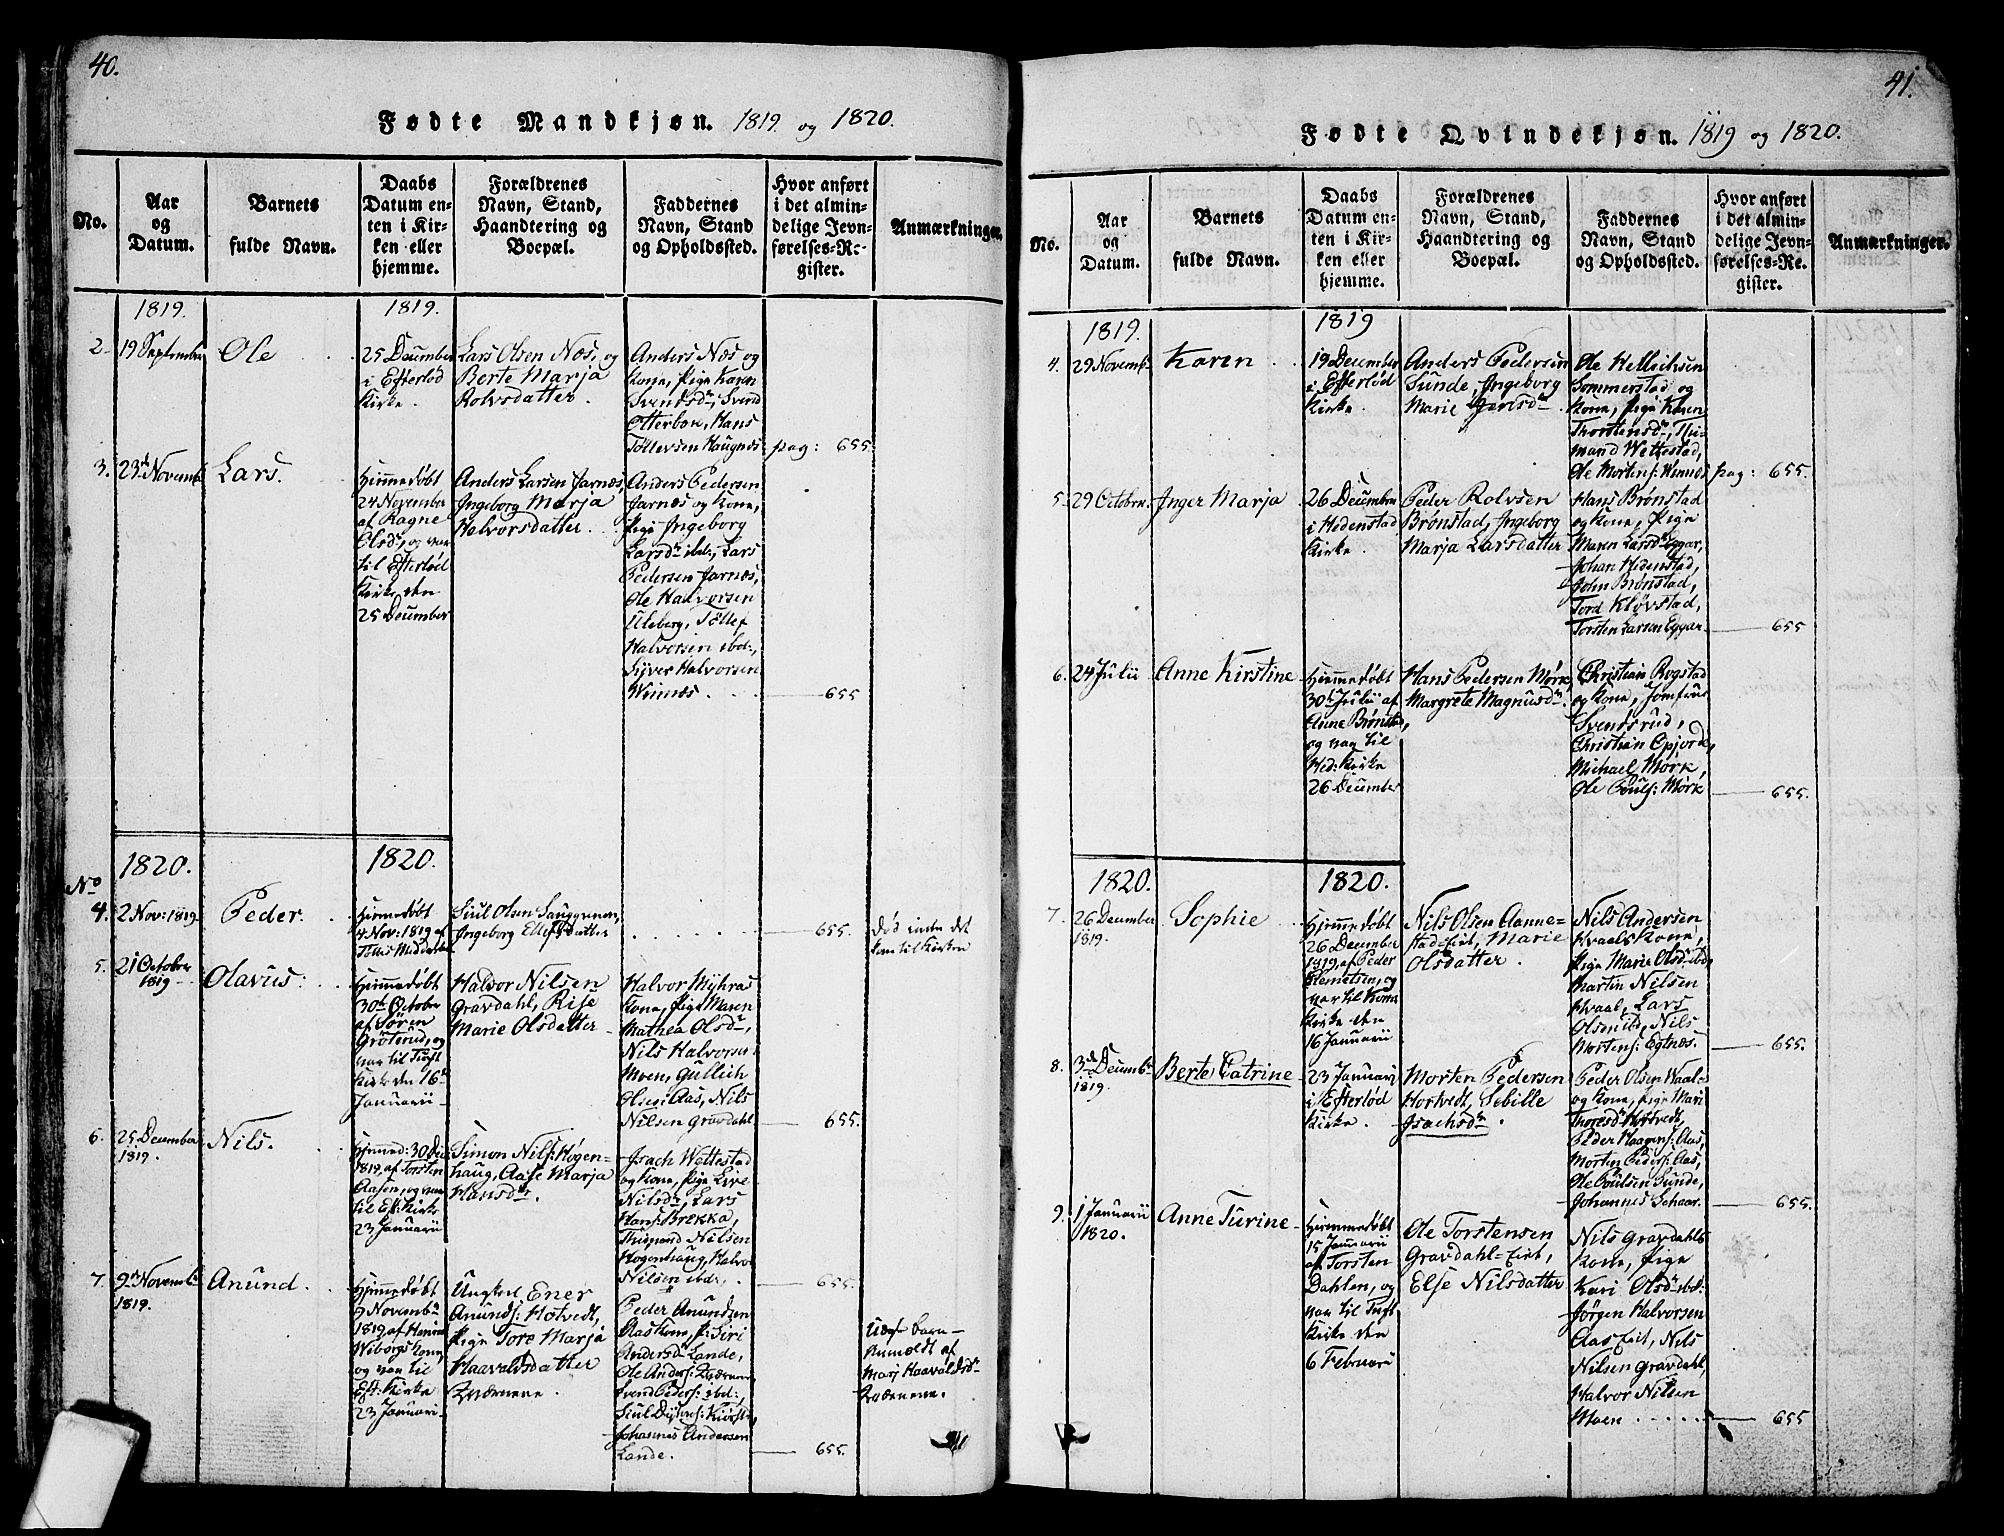 40.
Fødte Mandkjøn. 1819. og 1820.
No.
Aar
og
Datum.
Barnets
fulde Navn.
Daabs
Datum en-
ten i Kir-
ken eller
hjemme.
Forældrenes
Navn, Stand,
Haandtering og
Boepæl.
Faddernes
Navn, Stand
og Opholdssted.
Hvor anført
i det almin-
delige Jevn-
førelses-Re-
gister.
Anmærkninger.
1819.
1819.
2.
19 September
Ole
25 December
i Efterlød
Kirke.
Lars Olsen Næs, og
Berte Marja
Rolvsdatter.
Anders Næs og
Kone, Pige Karen
Svendsdr, Svend
Otterbok, Hans
Tollevsen Haugnæs
pag: 655.
3.
23d Novemb.
Lars.
Hiemmedøbt
24 November
af Ragne
Elsdr, og var
til Efterlød
Kirke den
25 December
Anders Larsen Jarnæs,
Ingeborg Marja
Halvorsdatter.
Anders Pedersen
Jarnæs og Kone,
Pige Ingeborg
Larsdr ibd:, Lars
Pedersen Jarnæs,
Ole Halvorsen
Uleberg, Tollef
Halvorsen ibd:,
Syver Halvorsen
Winnæs.
655
1820.
1820.
No
4.
2 Nov: 1819.
Peder.
Hiemmedøbt
4 Nov: 1819 af
Siul Olsen
Ingeborg Ellefsdatter
655.
Død inden det
kom til Kirken
5.
21 October
1819
Olavus.
Hiemmedøbt
30d October
af Søren
Grøterud, og
var til Tugl.
Kirke den 16d
Januarii
Halvor Nilsen
Gravdahl, Rise
Marie Olsdatter
Halvor Myhras
Kone, Pige Maren
Mathea Olsdr,
Nils Halvorsen
Moen, Gullich
Olsen Aas, Nils
Nilsen Gravdahl
655.
6.
25 December
1819.
Nils.
Hiemmed: 30 Dec
1819 af Torsten
Aasen, og var
til Ef: Kirke
23 Januarii
Simon Nils: Høgen-
haug, Aase Marja
Hansdr.
Isach Wettestad
og Kone, Pige Live
Nilsdr, Lars
Hans: Brekka,
Thimand Nilsen
Hogenhaug, Halvor
Nilsen ibd.
655.
7.
9de Novemb:
1819.
Anund.
Hiemmedøbt
9 Novembr
1819 af Henrik
Wiborgs Kone,
og var til
Ef: Kirke
23 Januari
Ungkarl Ener
Anunds: Hotvedt,
Pige Tore Marja
Haavaldsdatter
Kværnene.
Peder Anundsen
Aas Kone, P: Siri
Andersdr Lande,
Ole Anders: Kværnene
Svend Peders: ibd:,
Johannes Andersen
Lande.
655.
Uægt. barn
Anmeldt af
Mari Haavaldsdr
Kværnene.
41.
Fødte Qvindekjøn. 1819 og 1820.
No.
Aar
og
Datum.
Barnets
fulde Navn.
Daabs
Datum en-
ten i Kir-
ken eller
hjemme.
Forældrenes
Navn, Stand,
Haandtering og
Boepæl.
Faddernes
Navn, Stand
og Opholdssted.
Hvor anført
i det almin-
delige Jevn-
førelses-Re-
gister.
Anmærkninger.
1819.
1819
4.
29 Novemb.
Karen
19 December
i Efterlød
Kirke.
Anders Pedersen
Sunde, Ingeborg
Marie Jensdr
Ole Hellichsen
Sommerstad og
Kone, Pige Karen
Thorstensdr, Thi-
mand Wettestad,
Ole Mortens:
pag: 655.
5.
29 October.
Inger Marja
26 December
i Hedenstad
Kirke.
Peder Rolvsen
Brønstad, Ingeborg
Marja Larsdatter
Hans Brønstad
og Kone, Pige
Maren Larsdr Eggar,
Johan Hedenstad,
John Brønstad,
Tord Kløvstad,
Torsten Larsen Eggar
655
6.
24 Julii
Anne Kirstine
Hiemmedøbt
30d Julii af
Anne Brønstad,
og var til
Hed: Kirke
26 December
Hans Pedersen Mørk,
Margrete Magnusdr.
Christian Rogstad
og Kone, Jomfrue
Svendsrud,
Christian Opjorde,
Michael Mørk,
Ole Pouls: Mørk
655.
1820.
1820.
7.
26 December
1819.
Sophie
Hiemmedøbt
26 December
1819, af Peder
Clemetsen, og
var til Kom:
Kirke den
16 Januarii
Nils Olsen Aanne-
stad=eiet, Marie
Olsdatter.
Nils Andersen
Hvaals Kone,
Pige Marie Olsd: ibd,
Martin Nilsen
Hvaal, Lars
Olsen ibd, Nils
Mortens: Egtnæs.
655.
8.
3d Decemb.
1819.
Berte Catrine
23 Januari
i Efterlød
Kirke.
Morten Pedersen
Hortvedt, Sebille
Isachsdr.
Peder Olsen Waal
og Kone, Pige Mari
Thoresdr Hotvedt,
Peder Haagens: Aas,
Morten Peders: Aas,
Ole Poulsen Sunde,
Johannes Schaar.
655.
9.
1 Januarii
1820.
Anne Turine
Hiemmedøbt
15 Januarii
af Torsten
Dahlen, og
var til Tugl.
Kirke den
6 Februari
Ole Torstensen
Gravdahl=eiet,
Else Nilsdatter
Nils Gravdahls
Kone, Pige
Kari Olsdr ibd:
Jørgen Halvorsen
Aaseiet, Nils
Nilsen Gravdahl,
Halvor Nilsen
Moen
655